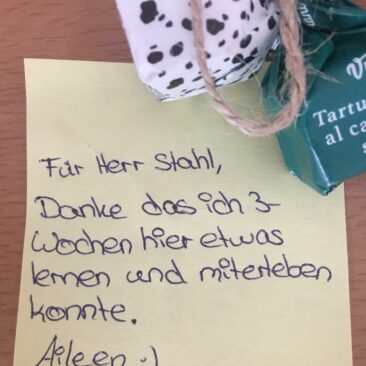 Für Herr Stahl,
Danke das ich 3-
Wochen hier etwas
lernen und miterleben
konnte.
Aileen :)
Tartu
al ca
s